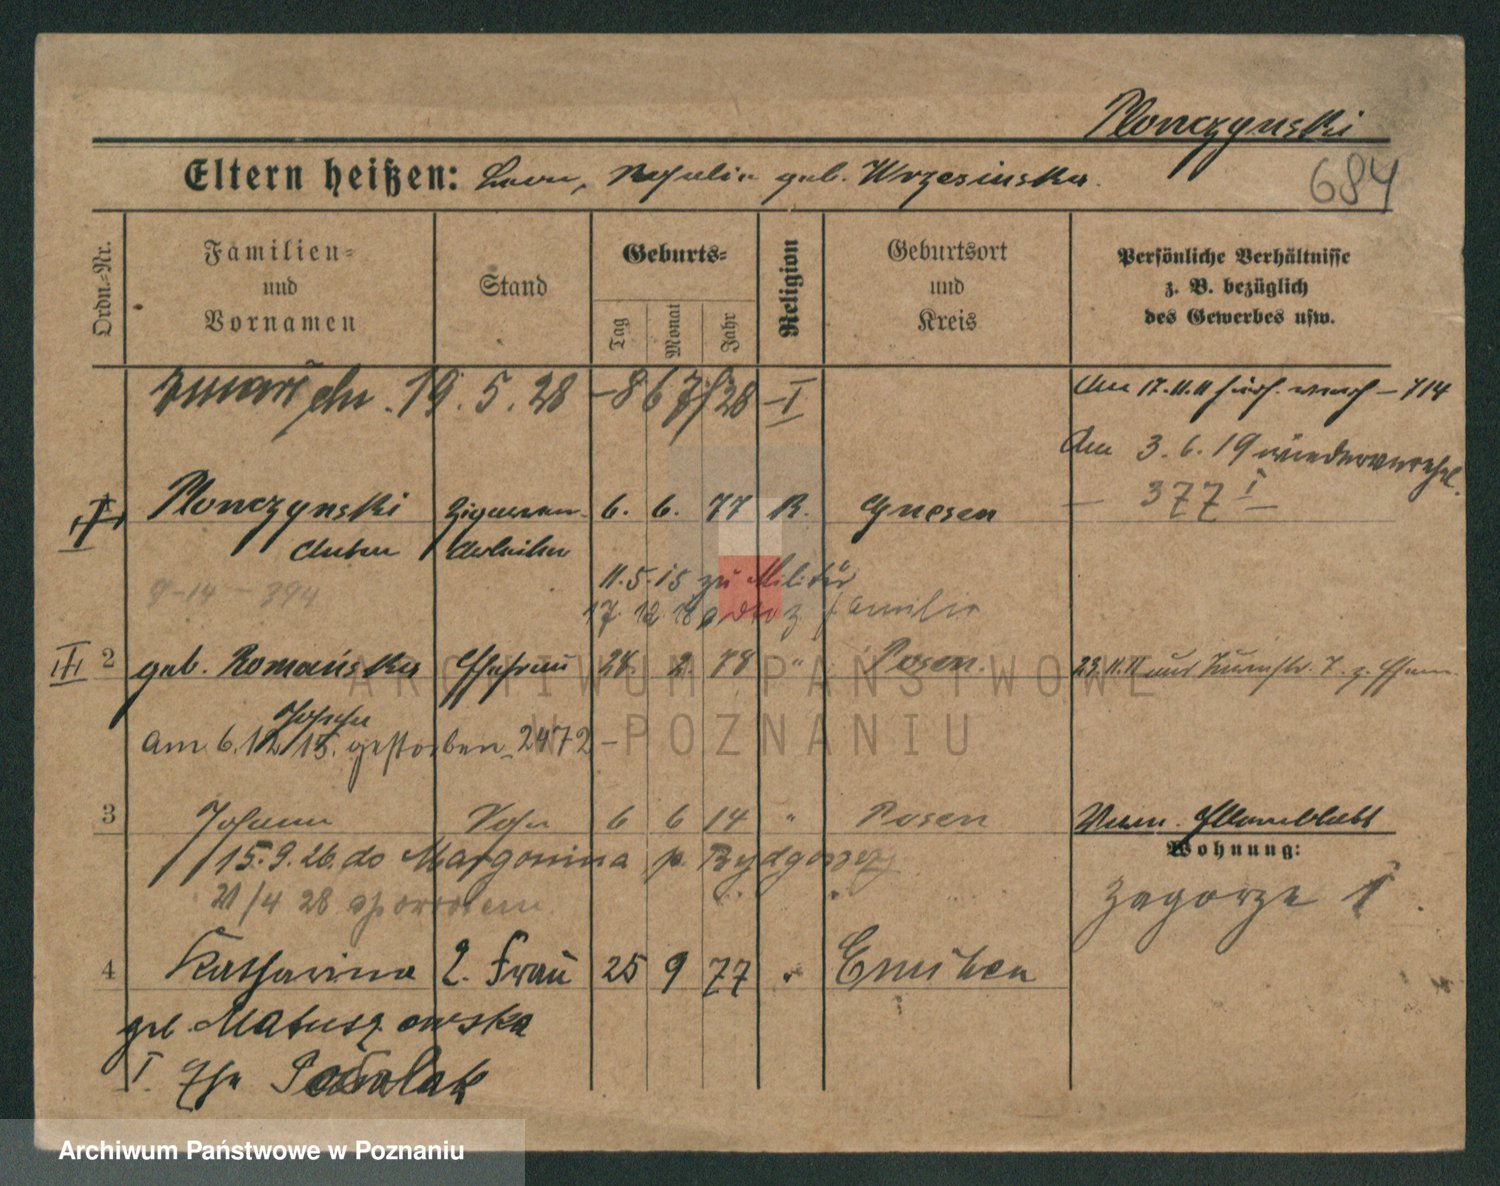 Plonczynski
Eltern heißen: Leon, geb. Wrzesinska.
684
Ordn.-Nr.
Familien- und Vornamen
Stand
Geburts-
Tag
Monat
Jahr
Religion
Geburtsort und Kreis
Persönliche Verhältnisse
z. B. bezüglich
des Gewerbes usw.
zmarł dn. 19. 5. 28 - 867/28 - I
Am 17.11.11 - 714
Am 3. 6. 19 wiederverehel.
- 377 I -
I Plonczynski Zigarren- 6. 6. 77 R. Gnesen
Anton Arbeiter
9-14 - 394
11.5.15 zu Militär
17. 12. 18 z. Familie
II 2 geb. Romańska Ehefrau 28. 2. 78 " Posen
23.11.11
Josepha
Am 6. 12. 15. gestorben - 2472 -
3 Johann Sohn 6 6 14 " Posen
15. 9. 26. do Margonina p. Bydgoszcz
21/4 28
Wohnung:
Zagorze 1
4 Katharina 2. Frau 25 9 77 "
geb. Matuszewska
I.
Archiwum Państwowe w Poznaniu
ARCHIWUM PAŃSTWOWE
W POZNANIU